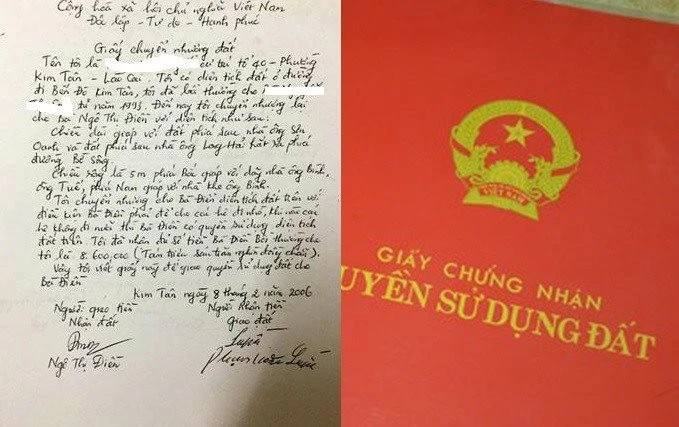 Cộng hoà xã hội chủ nghĩa Việt Nam
Độc lập - Tự do - Hạnh phúc
Giấy chuyển nhường đất
Tên tôi là cư trú tổ 40 - Phường
Kim Tân - Lào Cai. Tôi có diện tích đất ở đường
đi Bến Đá Kim Tân, tôi đã bồi thường cho
từ năm 1993. Đến nay tôi chuyển nhượng lại
cho bà Ngô Thị Điền với diện tích như sau:
Chiều dài giáp với đất phía sau nhà ông Sơn
Oanh và đất phía sau nhà ông Long Hà kát ra phía
đường Bờ sông.
Chiều rộng là 5m phía Bắc giáp với dãy nhà ông Bình,
ông Tuế, phía Nam giáp với nhà kho ông Bình.
Tôi chuyển nhượng cho Bà Điền diện tích đất trên với
điều kiện Bà Điền phải để cho các hộ đi nhờ, khi nào các
hộ không đi nữa thì Bà Điền có quyền sử dụng diện tích
đất trên. Tôi đã nhận đủ số tiền Bà Điền Bồi thường cho
tôi là 8.600.000 (Tám triệu sáu trăm nghìn đồng chẵn).
Vậy tôi viết giấy này để giao quyền sử dụng đất cho
Bà Điền.
Kim Tân ngày 8 tháng 2 năm 2006
Người giao tiền Người nhận tiền
Nhận đất giao đất
Ngô Thị Điền
VIỆT NAM
GIẤY CHỨNG NHẬN
UYỀN SỬ DỤNG ĐẤT